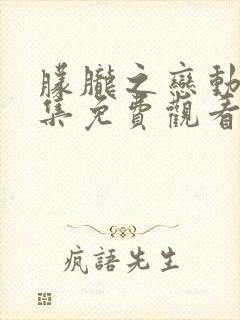 朦朧之戀動
集免費觀看
疯語先生